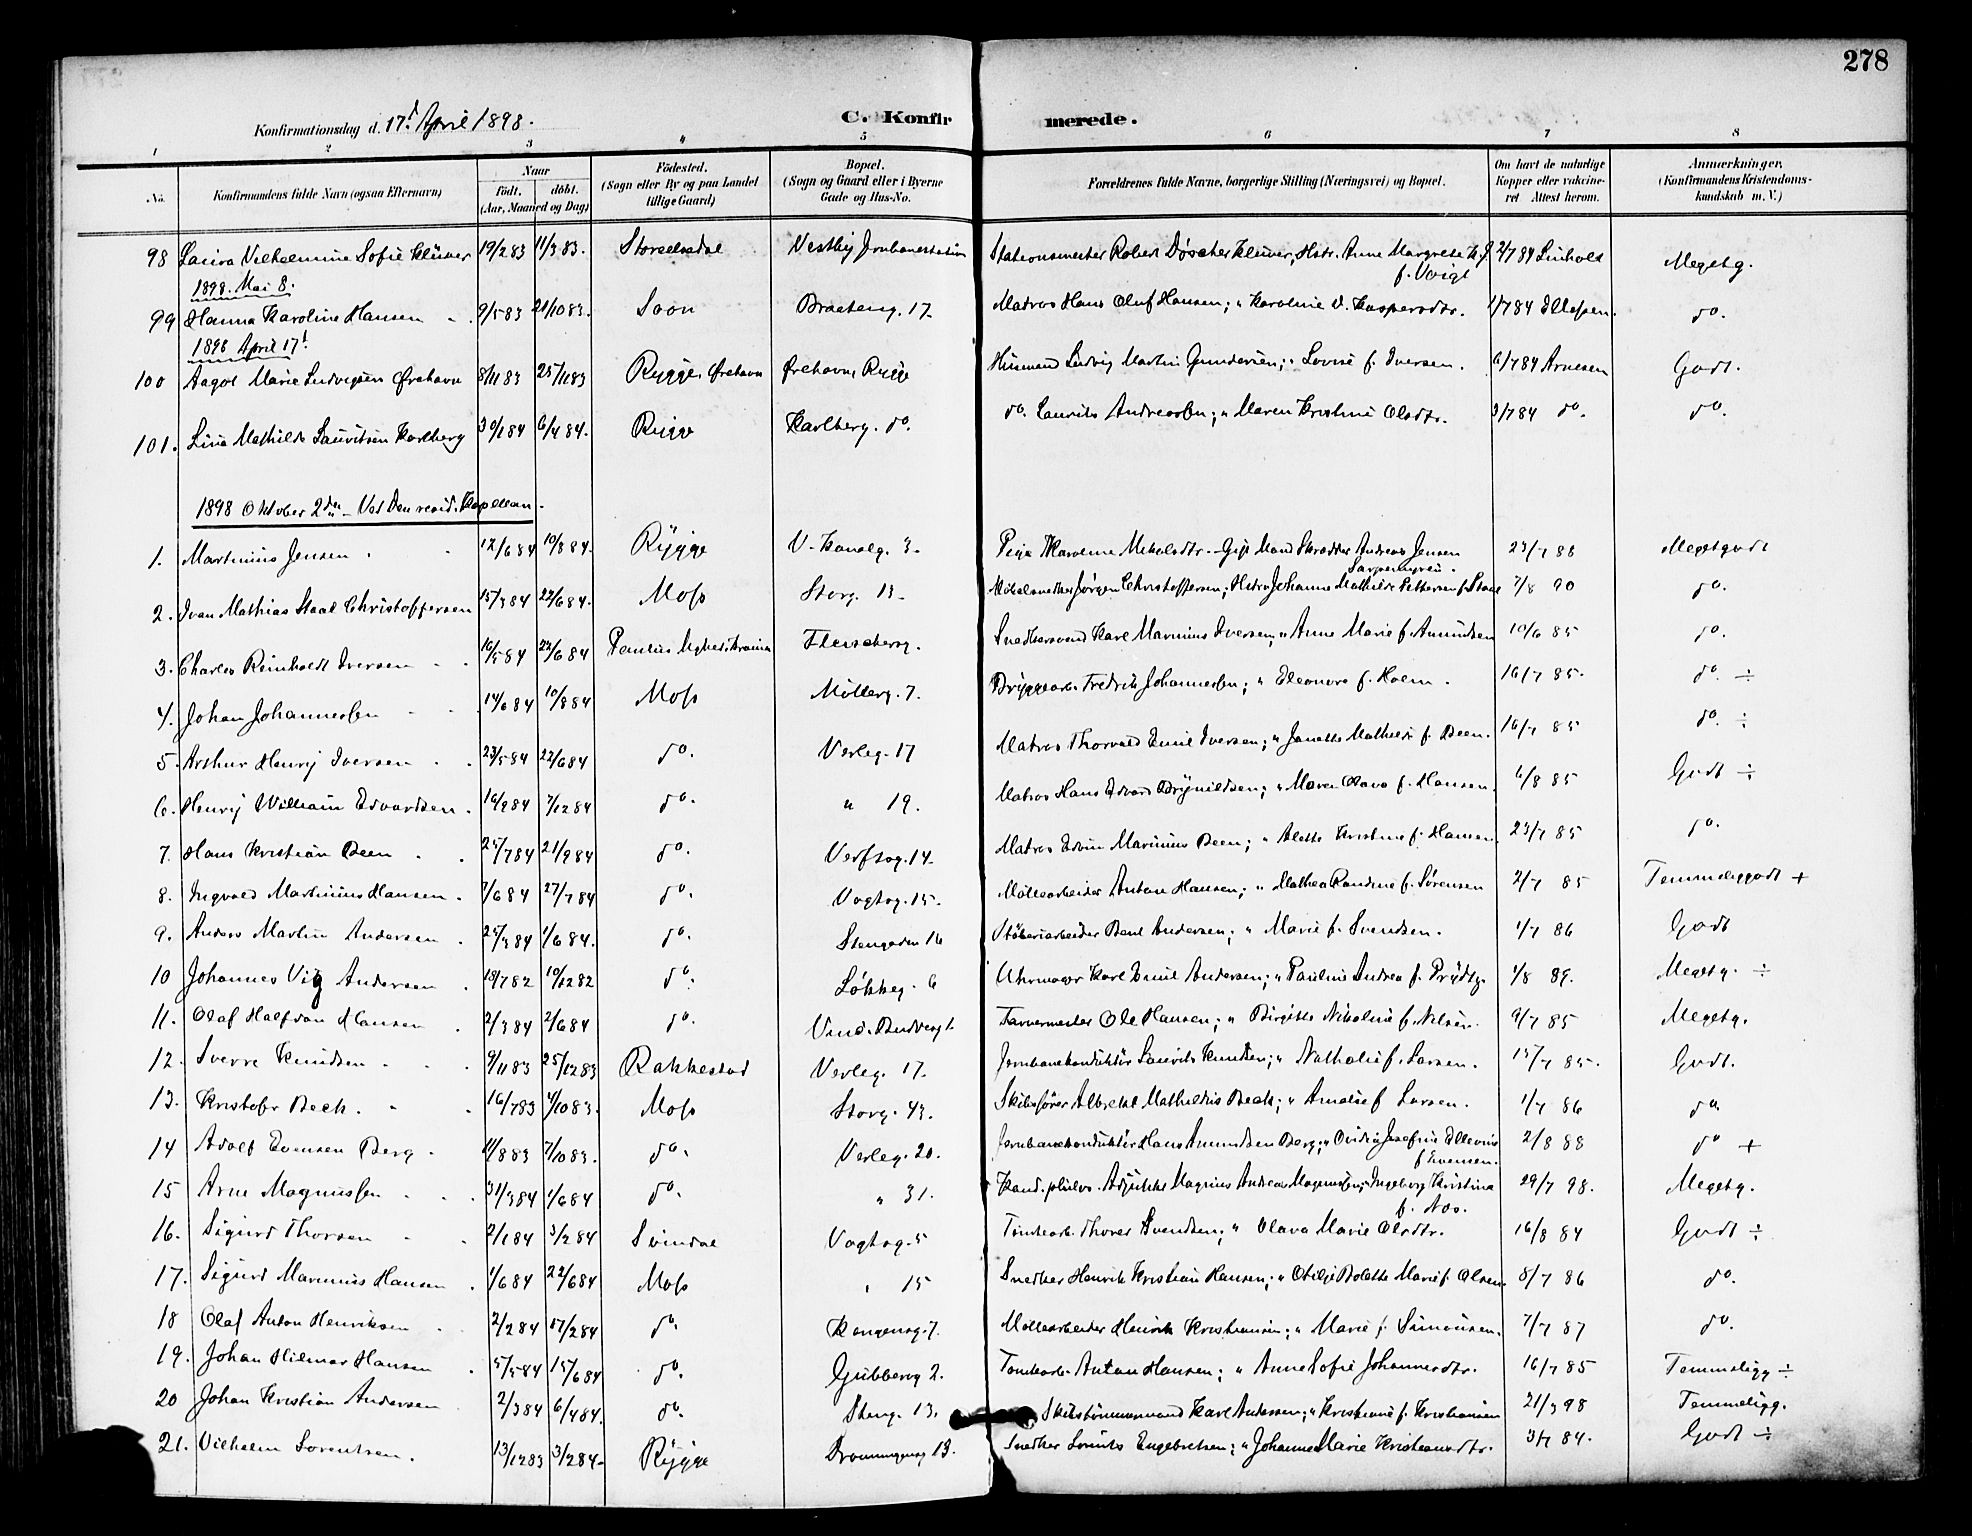 278
Konfirmationsdag d. 17d April 1898.
C. Konfirmerede.
1 2 3 4 5 6 7 8
No. Konfirmandens fulde Navn (ogsaa Efternavn) Naar födt. döbt. (Aar, Maaned og Dag) Födested. (Sogn eller By og paa Landet tillige Gaard) Bopæl. (Sogn og Gaard eller i Byerne Gade og Hus-No. Forældrenes fulde Navne, borgerlige Stilling (Næringsvei) og Bopæl. Om havt de naturlige Kopper eller vaccineret Attest herom. Anmærkninger, (Konfirmandens Kristendomskundskab m. V.)
98 Laura Vilhelmine Sofie Klüwer 19/2 83 11/3 83. Vestby Jernbanestation Stationsmester Robert Klüwer; Hstr. Anne Margrete f. Voigt 2/7 84 Linholt Megetg.
1898. Mai 8.
99 Hanna Karoline Hansen 9/5 83 21/10 83. Soon Braateng. 17. Matros Hans Oluf Hansen; " Karoline V. Kaspersdtr. 1/7 84 Ellefsen do.
1898 April 17d
100 Aagot Marie Ludvigsen Ørehavn 8/11 83 25/11 83 Rygge, Ørehavn Ørehavn, Rygge Husmand Ludvig Martin Gundersen; " Lovise f. Iversen. 6/7 84 Arnesen Godt.
101. Lina Mathilde Lauritsen Karlberg 30/1 84 6/4 84. Rygge Karlberg. do. do. Laurits Andreassen; " Maren Kristine Olsdtr. 3/7 84 do. do.
1898 Oktober 2den - Ved Den resid. Kapellan.
1. Martinius Jensen 12/6 84 10/8 84. Rygge V. Kanalg. 3. Pige Karoline Mikalsdtr. - Gift Mand Skrædder Andreas Jensen 23/7 88 Megetgodt
2. Ivan Mathias Staal Christoffersen 15/3 84 22/6 84. Moss Storg. 13. Jørgen Christoffersen; Hstr. Johanne Mathilde Pettersen f. Staal 7/8 90 do.
3. Charles Reinholdt Iversen 16/5 84 22/6 84 Fleischerg. Snedkersvend Karl Marinius Iversen; " Anne Marie f. Amundsen 10/6 85 do.
4. Johan Johannessen 14/6 84 10/8 84 Moss Møllerg. 7. Bryggearb. Fredrik Johannessen; " Eleonore f. Holm. 16/7 85. do. ÷
5. Arthur Henry Iversen 23/5 84 22/6 84 do. Verleg. 17 Matros Thorvald Emil Iversen; " Janette Mathilde f. Been. 16/7 85 do. ÷
6. Henry William Edvardsen. 16/9 84 7/12 84 do. " 19. Matros Hans Edvard Brynildsen; " Maren Olava f. Hansen. 6/8 85 Godt ÷
7. Hans Kristian Been 25/7 84 21/9 84 do. Verftsg. 14. Matros Edvin Marinius Been; " Alette Kristine f. Hansen. 23/7 85 do.
8. Ingvald Martinius Hansen. 7/6 84 27/7 84 do. Vogtsg. 15. Møllearbeider Anton Hansen; " Mathea Randine f. Sørensen 2/7 85 Temmeliggodt +
9. Anders Martin Andersen 25/3 84 1/6 84. do. Stengaden 16 Støberiarbeider Bent Andersen; " Marie f. Svendsen. 1/7 86 Godt
10 Johannes Vig Andersen 18/7 82 10/12 82 do. Løkkeg. 6 Uhrmager Karl Emil Andersen; " Pauline Andrea f. Prydtz. 1/8 89. Megetg. ÷
11. Olaf Halfdan Hansen 2/3 84 2/6 84 do. Farvermester Ole Hansen; " Birgitte Nikoline f. Nilsen. 9/7 85 Megetg.
12. Sverre Knudsen 9/11 83 25/12 83 Rakkestad Verleg. 17. Jernbanekonduktör Laurits Knudsen; " Nathalie f. Larsen. 15/7 85. Godt.
13. Kristofer Bech. 16/7 83 4/10 83. Moss Storg. 43. Skibsfører Albrekt Mathildus Bech; " Amalie f. Larsen. 1/7 86 do.
14 Adolf Evensen Berg 11/8 83 7/10 83. do. Verleg. 20. Jernbanekonduktör Hans Amundsen Berg; " Ovidia Josefine Ellevine f. Evensen. 2/8 88 do +
15 Arne Magnussen 31/3 84 1/6 84 do. " 31. Kand. philos. Adjunkt Magnus Andreas Magnussen; " Ingeborg Kristina f. Aas. 29/7 98. Megetg.
16. Sigurd Thorsen 2/1 84 3/2 84 Svindal Vogtsg. 5 Tomtearb. Thorer Svendsen; " Olava Marie Olsdtr. 16/8 84 Godt ÷
17. Sigurd Marinius Hansen 1/6 84 22/6 84 Moss " 15 Snedker Henrik Kristian Hansen; " Otilie Bolette Marie f. Olsen. 8/7 86 do.
18 Olaf Anton Henriksen 2/2 84 17/2 84 do. Kongensg. 7. Møllearbeider Henrik Kristiansen; " Marie f. Simonsen. 7/7 87 do.
19. Johan Hilmar Hansen 5/5 84 15/6 84 do. Gubberog 2. Tomtearb. Anton Hansen; " Anne Sofie Johannesdtr. 16/7 85 Temmeligg ÷
20 Johan Kristian Andersen 2/3 84 6/4 84. do. Steng. 13. Skibstømmermand Karl Andersen; " Kristiane f. Kristiansen 21/3 98 Temmeligg.
21. Vilhelm Lorentsen. 13/12 83 3/2 84. Rygge Dronningensg 13. Snedker Lorents Engebretsen; " Johanne Marie Kristiansdtr. 3/7 84. Godt ÷